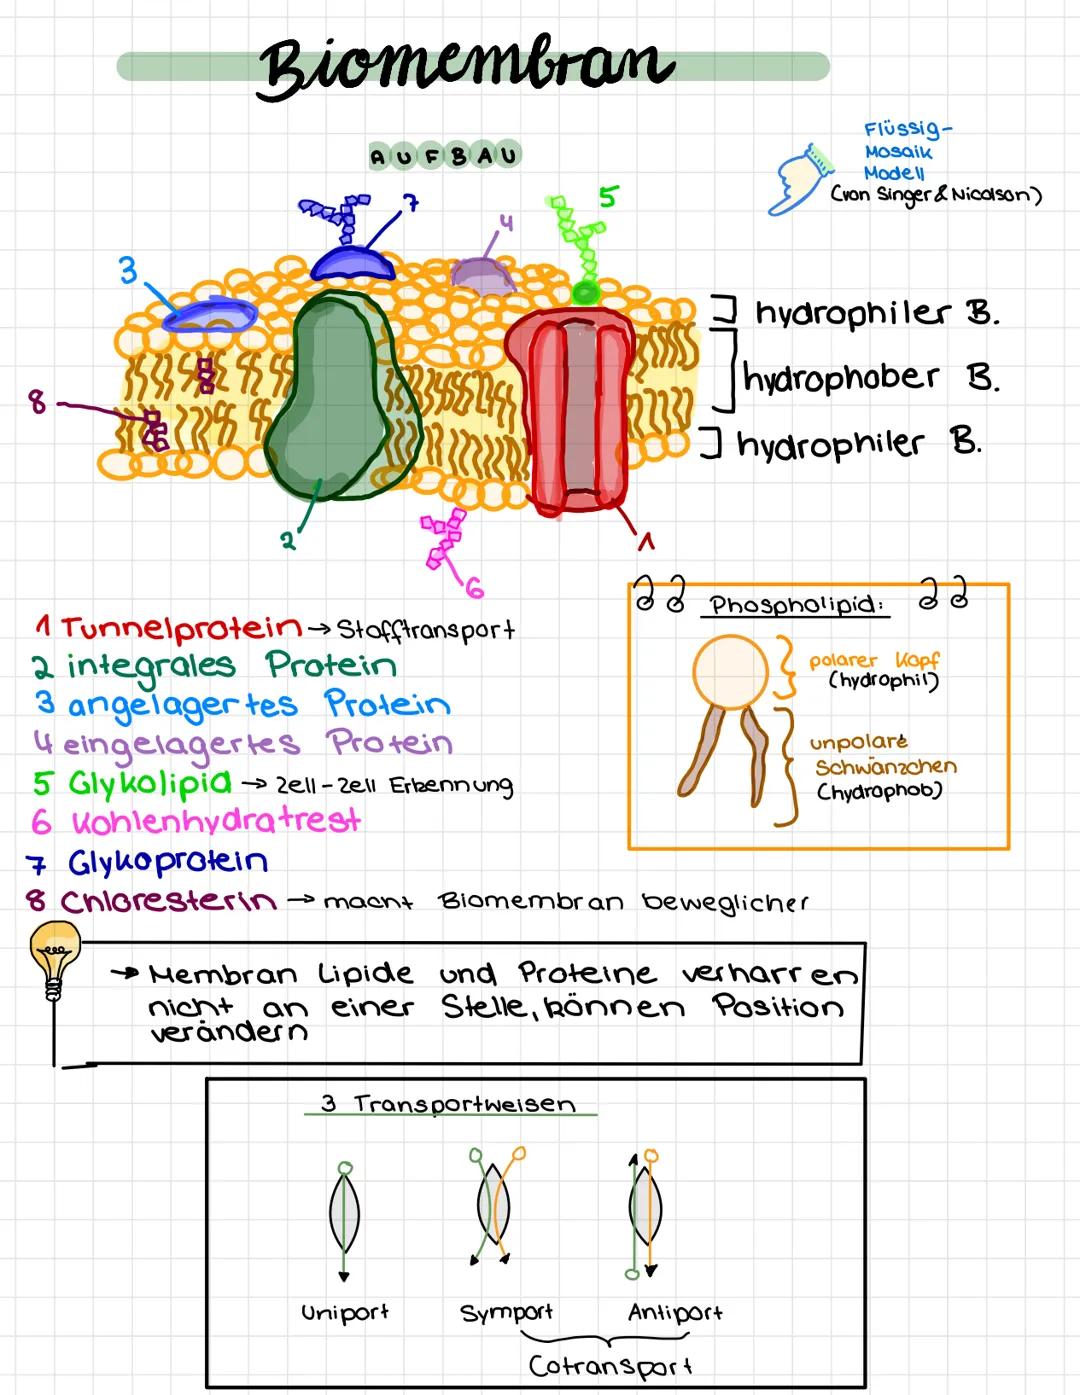 Biomembran
AUFBAU
Flüssig-
Mosaik
Modell
(von Singer & Nicolson)
7
5
4
3
8
hydrophiler B.
hydrophober B.
hydrophiler B.
2
1
6
1 Tunnelprotein → Stofftransport
2 integrales Protein
3 angelagertes Protein
4 eingelagertes Protein
5 Glykolipid → Zell-Zell Erkennung
6 Kohlenhydratrest
7 Glykoprotein
8 Chloresterin → macht Biomembran beweglicher
Phospholipid:
polarer Kopf
(hydrophil)
unpolare
Schwänzchen
(hydrophob)
→ Membran Lipide und Proteine verharren
nicht an einer Stelle, können Position
verändern
3 Transportweisen
Uniport Symport Antiport
Cotransport